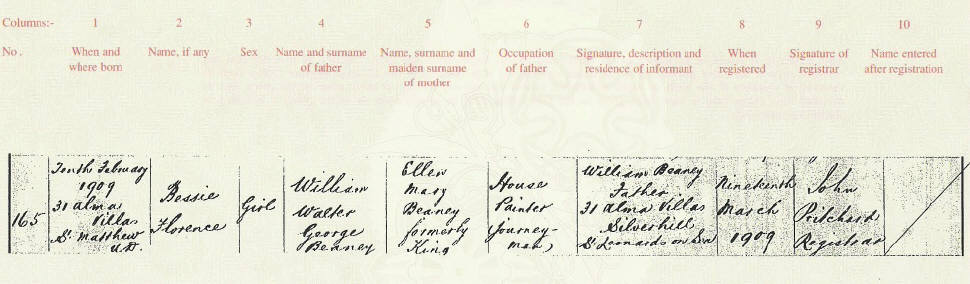 Columns:- 1 2 3 4 5 6 7 8 9 10
No. When and where born Name, if any Sex Name and surname of father Name, surname and maiden surname of mother Occupation of father Signature, description and residence of informant When registered Signature of registrar Name entered after registration
165
Tenth February
1909
31 Alma
Villas
St. Matthew
U.D.
Bessie
Florence
Girl
William
Walter
George
Beaney
Ellen
Mary
Beaney
formerly
King
House
Painter
(Journey-
man)
William Beaney
Father
31 Alma Villas
Silverhill
St Leonards on Sea
Nineteenth
March
1909
John
Pritchard
Registrar